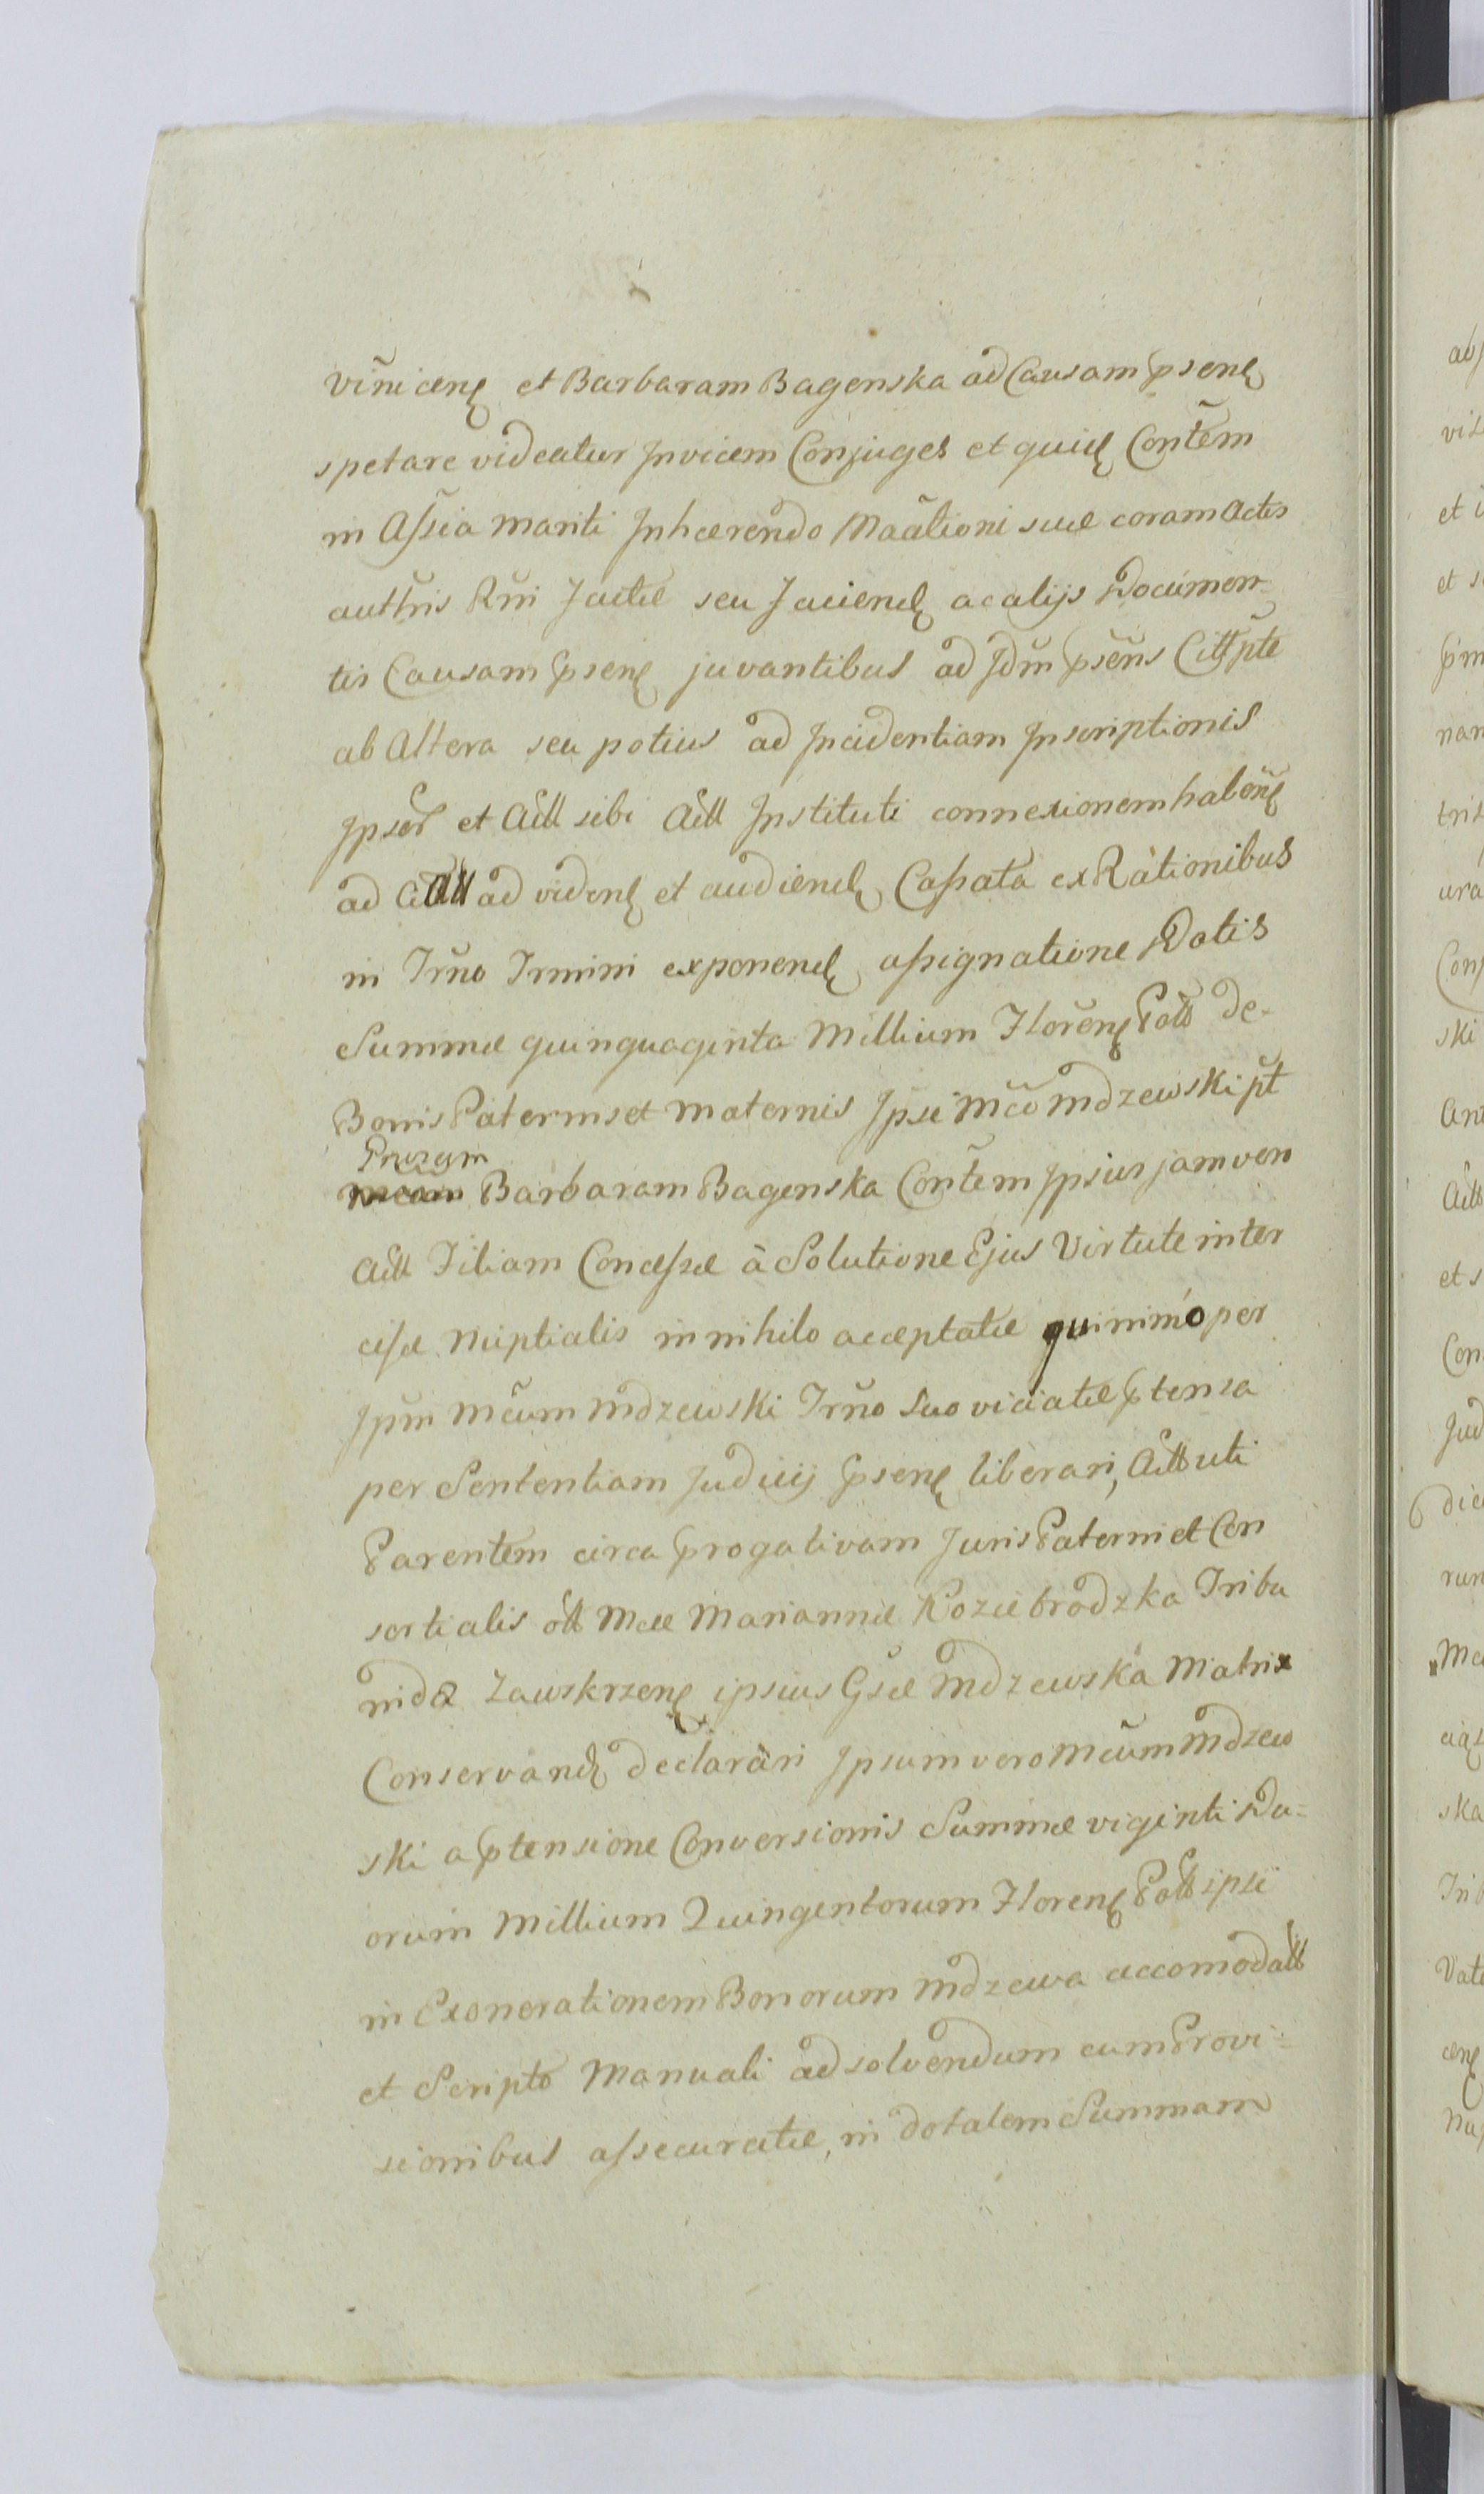 viñicens et Barbaram Bagenska ad Causam psens
spetare videatur Invicem Conjuges et quids Contẽm
in Assia mariti Inhærendo Maãlioni suæ coram Actis
auth̃is Rñi factæ seu faciends ac alijs Documen=
tis Causam psens juvantibus ad Jdm̃ psẽns Citt pte
ab Altera seu potius ad Incidentiam Inscriptionis
Ipser et Actt sibi Actt Instituti connexionem habeñs
ad Actt ad videns et audiends Cassata ex Rationibus
in Trño Trmini exponends assignatione Dotis
Summæ quinquaginta Millium Floreñs Poll de
Bonis Paternis et Maternis Ipsi Mc̃o Mdzewski pt̃
Prnzam
Barbaram Bagenska Contẽm Ipsius jam ven
Actt Filiam Concessæ à Solutione Ejus Virtute inter
cisæ Nuptialis in nihilo acceptatæ quinimó per
Ipm̃ Mc̃um Mdzewski Trño suo viciatæ ptensa
per Sententiam Judicij psens liberari, Actt uti
Parentem circa progativam Juris Paterni et Con
sortialis ott Mcæ Mariannæ Koziebrodzka Tribu
nidæ Zawskrzens ipsius Gsæ Mdzewska Matrix
Conservands declarari Ipsum vero Mc̃um Mdzew
ski a ptensione Conversionis Summæ viginti Du=
orum Millium Quingentorum Florens Poll ipsi
in Exonerationem Bonorum Mdzewa accomodatt
et Scripto Manuali ad solvendum cum Provi=
sionibus assecuratæ, in dotalem Summam